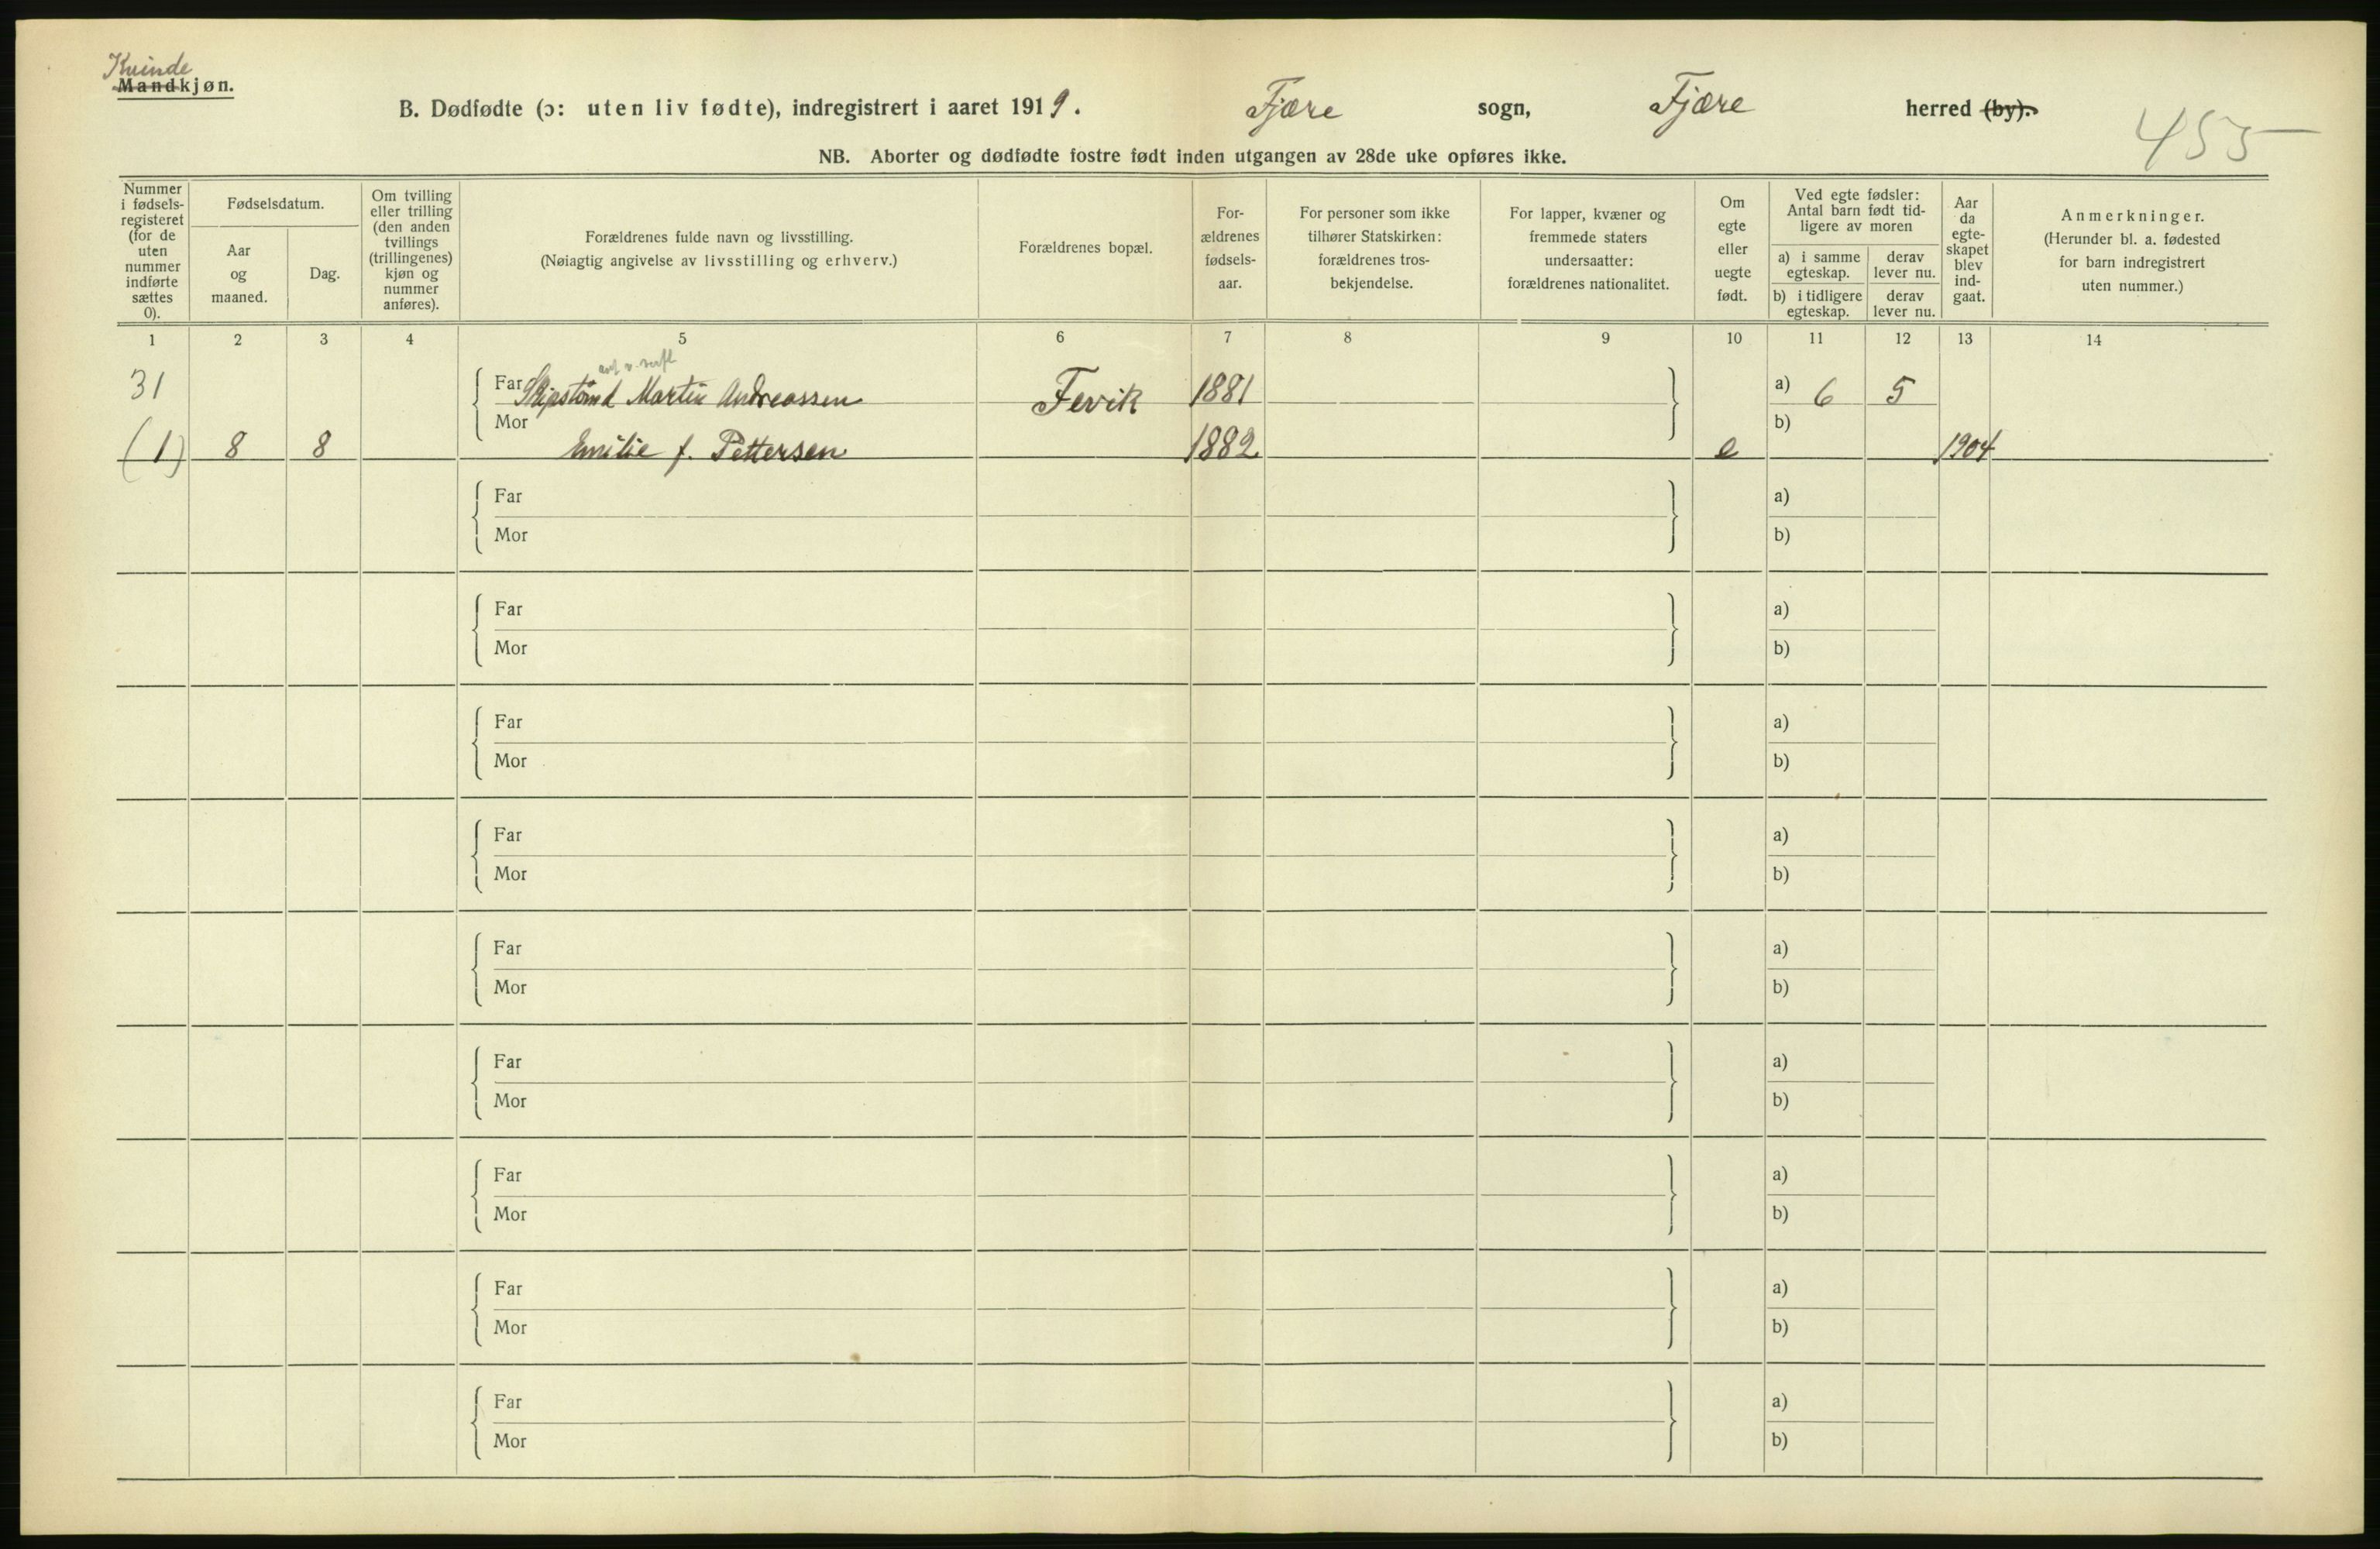 Kvinde
Mandkjøn.
B. Dødfødte (ɔ: uten liv fødte), indregistrert i aaret 1919. Fjære sogn, Fjære herred (by).
455
NB. Aborter og dødfødte fostre født inden utgangen av 28de uke opføres ikke.
Nummer i fødsels-registeret (for de uten nummer indførte sættes 0).
Fødselsdatum.
Aar og maaned.
Dag.
Om tvilling eller trilling (den anden tvillings (trillingenes) kjøn og nummer anføres).
Forældrenes fulde navn og livsstilling.
(Nøiagtig angivelse av livsstilling og erhverv.)
Forældrenes bopæl.
For-ældrenes fødsels-aar.
For personer som ikke tilhører Statskirken: forældrenes tros-bekjendelse.
For lapper, kvæner og fremmede staters undersaatter: forældrenes nationalitet.
Om egte eller uegte født.
Ved egte fødsler: Antal barn født tid-ligere av moren
a) i samme egteskap.
derav lever nu.
b) i tidligere egteskap.
derav lever nu.
Aar da egte-skapet blev ind-gaat.
Anmerkninger.
(Herunder bl. a. fødested for barn indregistrert uten nummer.)
1 2 3 4 5 6 7 8 9 10 11 12 13 14
31 Far Skipstømd Martin Andreassen Fevik 1881 a) 6 5
Mor b)
(1) 8 8 Emilie f. Pettersen 1882 e 1904
Far a)
Mor b)
Far a)
Mor b)
Far a)
Mor b)
Far a)
Mor b)
Far a)
Mor b)
Far a)
Mor b)
Far a)
Mor b)
Far a)
Mor b)
Far a)
Mor b)